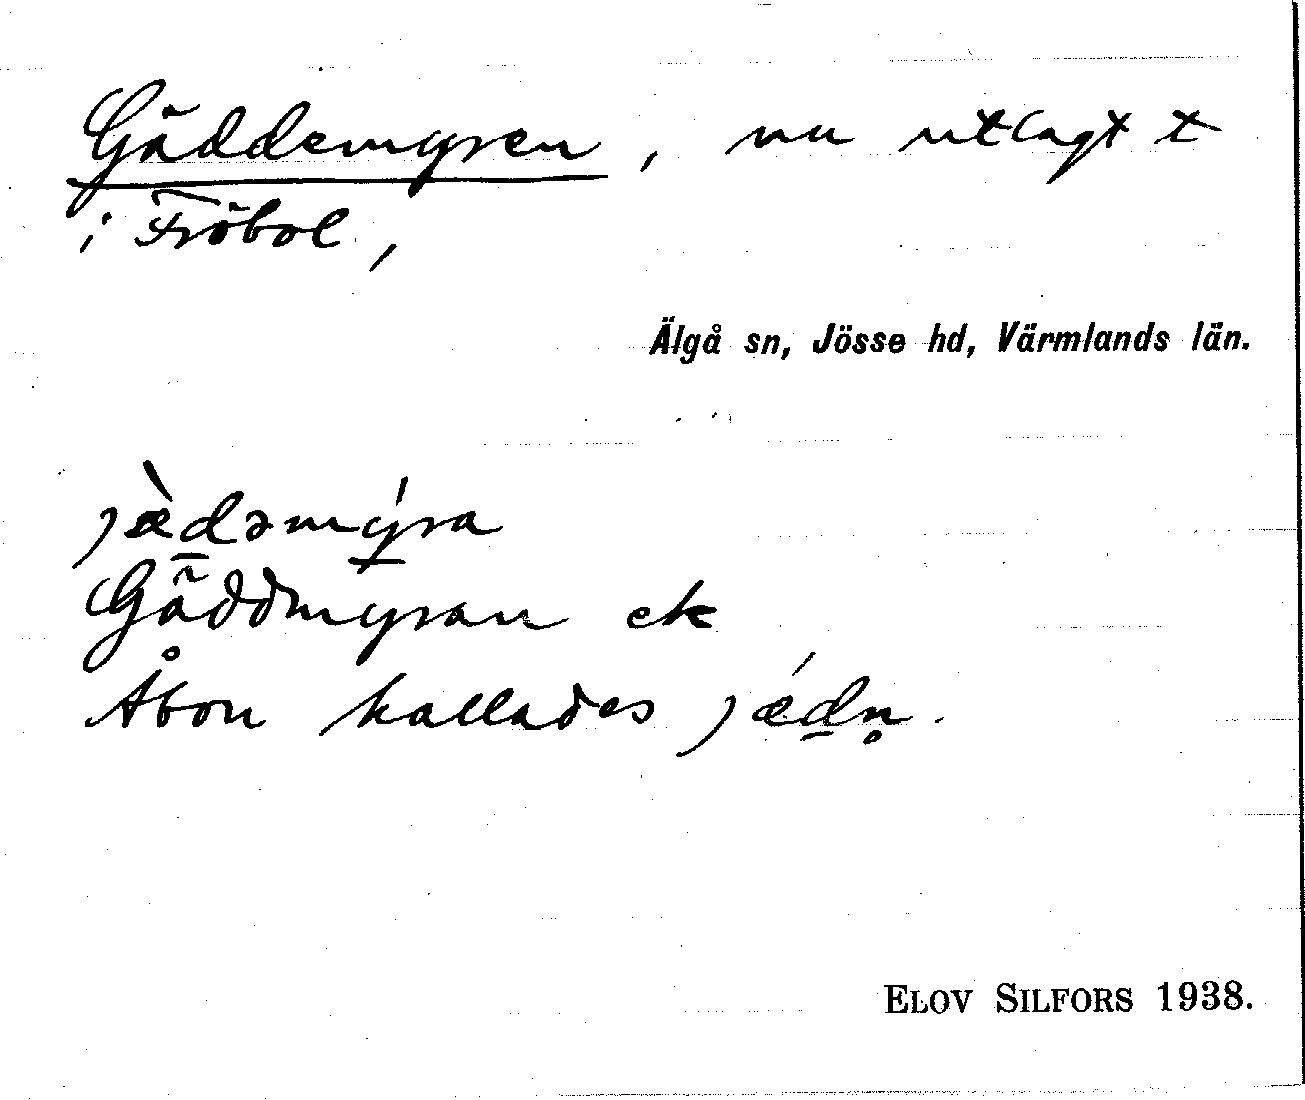 Gäddemyren, nu utlagt t
i Fröbol,
Älgå sn, Jösse hd, Värmlands län.
jæ̀d̲əmý̲ra
Gäddmyran ek
Åbon kallades jǽd̲n̥.
ELOV SILFORS 1938.